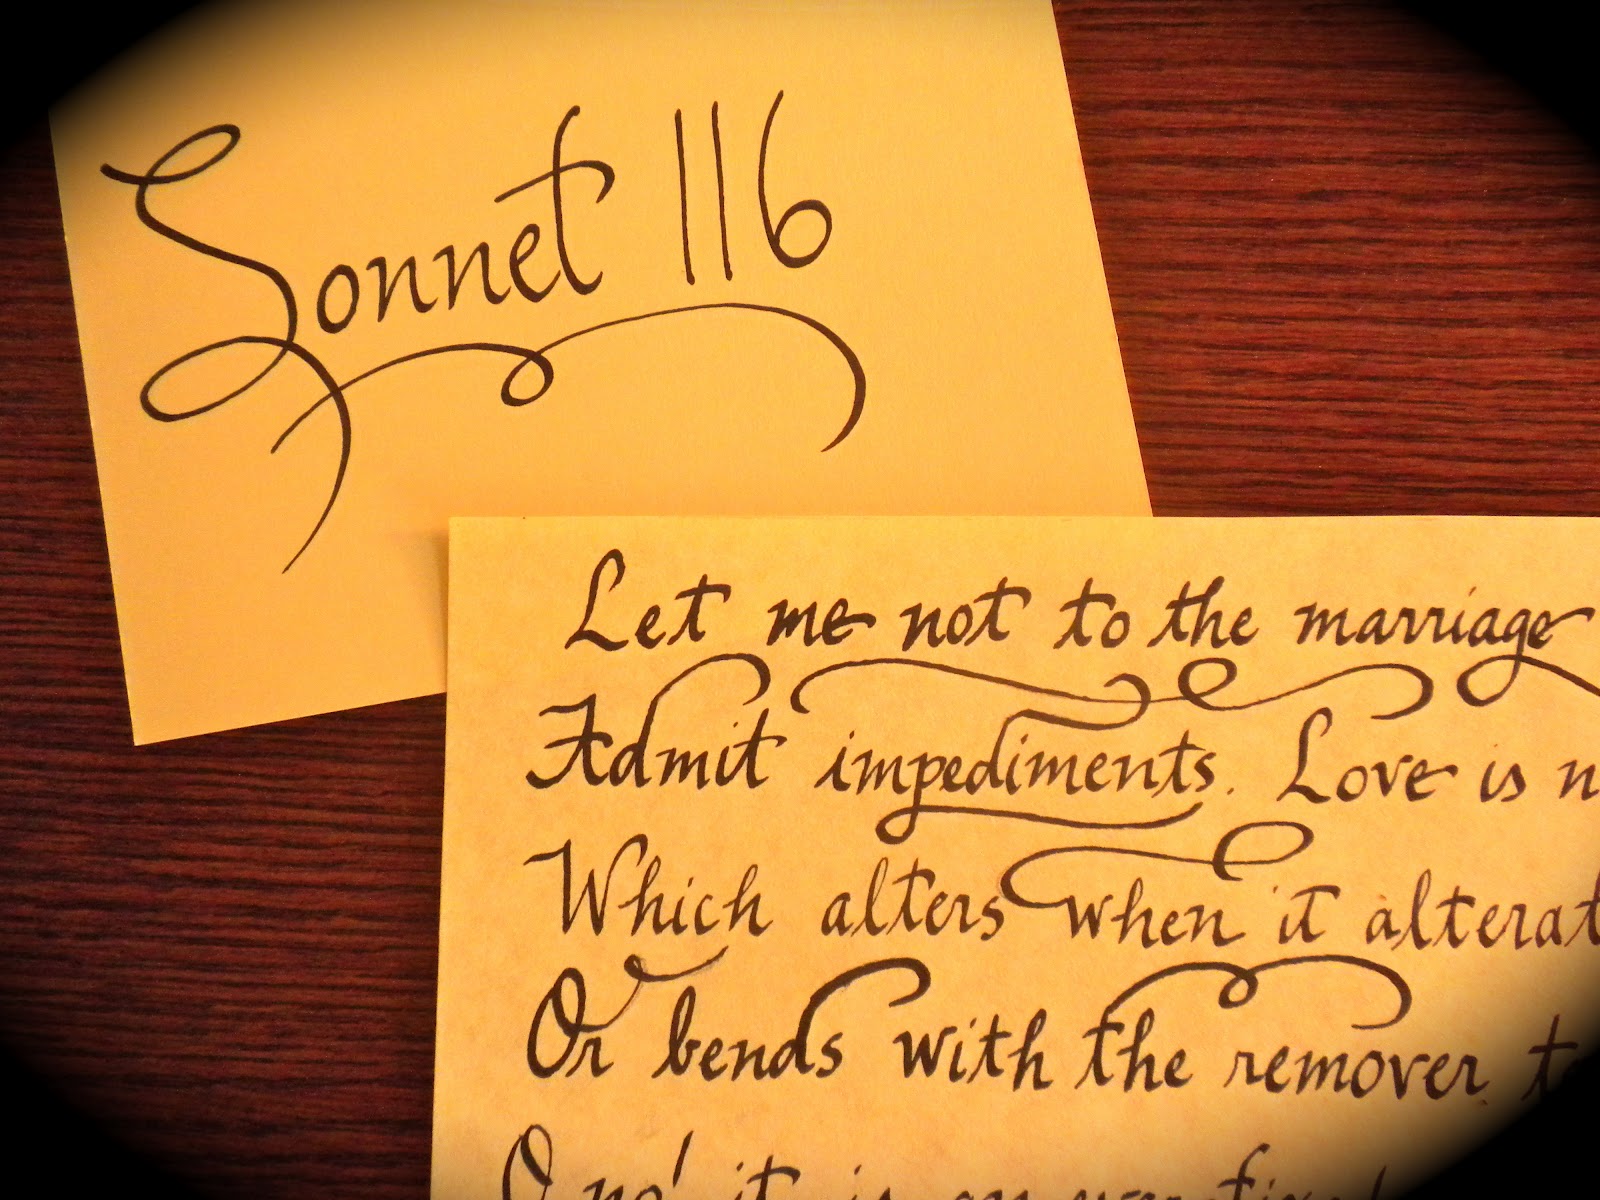 Sonnet 116
Let me not to the marriage
Admit impediments. Love is n
Which alters when it alterat
Or bends with the remover to
O no! it is an